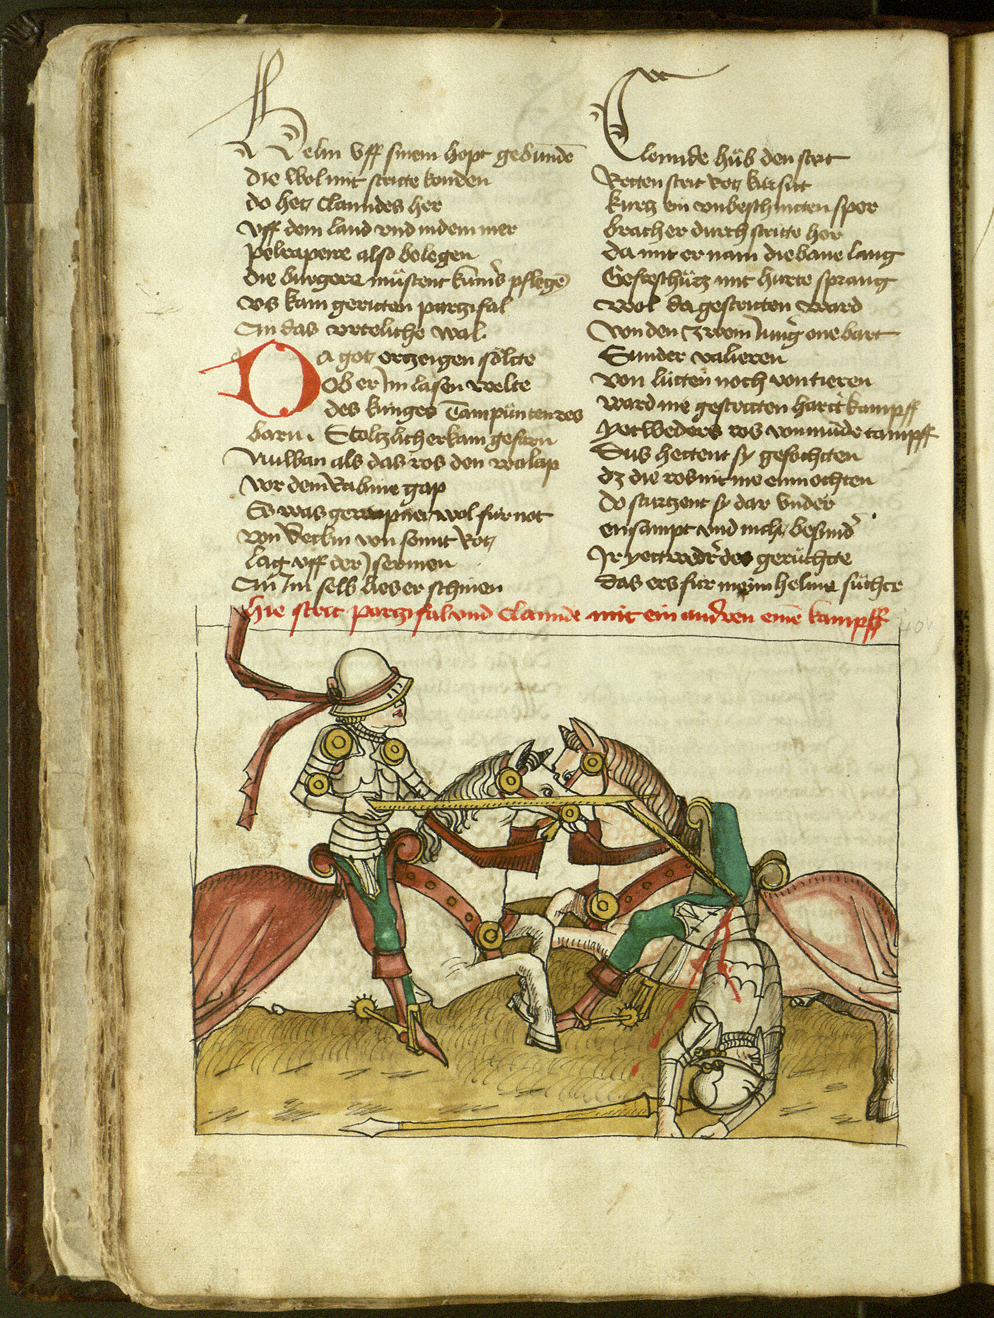 Helm vff sinem hopt gebunde
die wol mit stritte konden
do het Clamides her
vff dem land vnd in dem mer
Pelrapere also belegen
die burgere mustent kumers pflege
vs kam geritten parzifal
An das vrteliche wal
Da got erzeigen sölte
Ob er Jm lasen welte
des kunges Tampuntenres
barn. Stoltzlicher kam gefarn
Nuwan als das ros den walap
Vor dem rabine gap
Es was gewapnet wol fur not
von
lag vff der Jserinen
An Jm selb lies er schinen
Clamide hůb den strit
kurtz ein vnbeschnitten sper
bracher durch stritte her
da mit er nam die bane lang
Gesteschutz mit hurte sprang
wol da gestritten ward
Von den zwein Jung one bart
Sunder valieren
von lutten noch von tieren
ward nie gestritten harter kampff
yetweders ros von mude tampff
Sus hettent sy gefochtten
dz die ros nit me enmochten
Do sturtzent sy dar vnder
ensampt vnd nicht besund
Jr yettweder des geruchte
das ers fur in helme suchte
hie streit parzifal vnd Clamide mit ein andren eine kampff